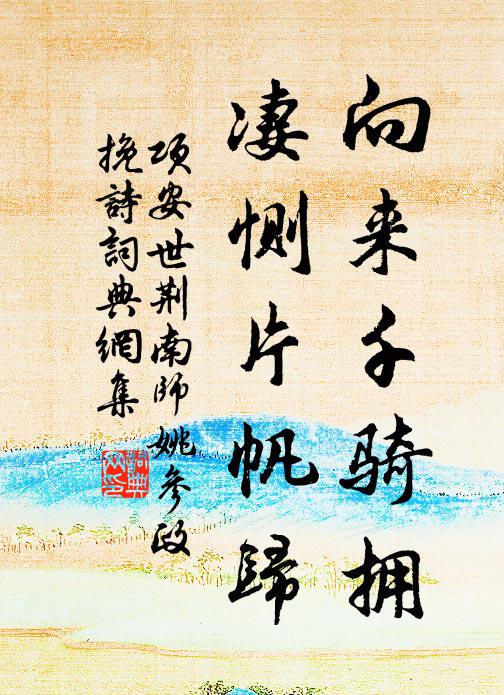 向来千骑拥
凄恻片帆歸
项安世荆南帅姚參政
挽詩詞典網集